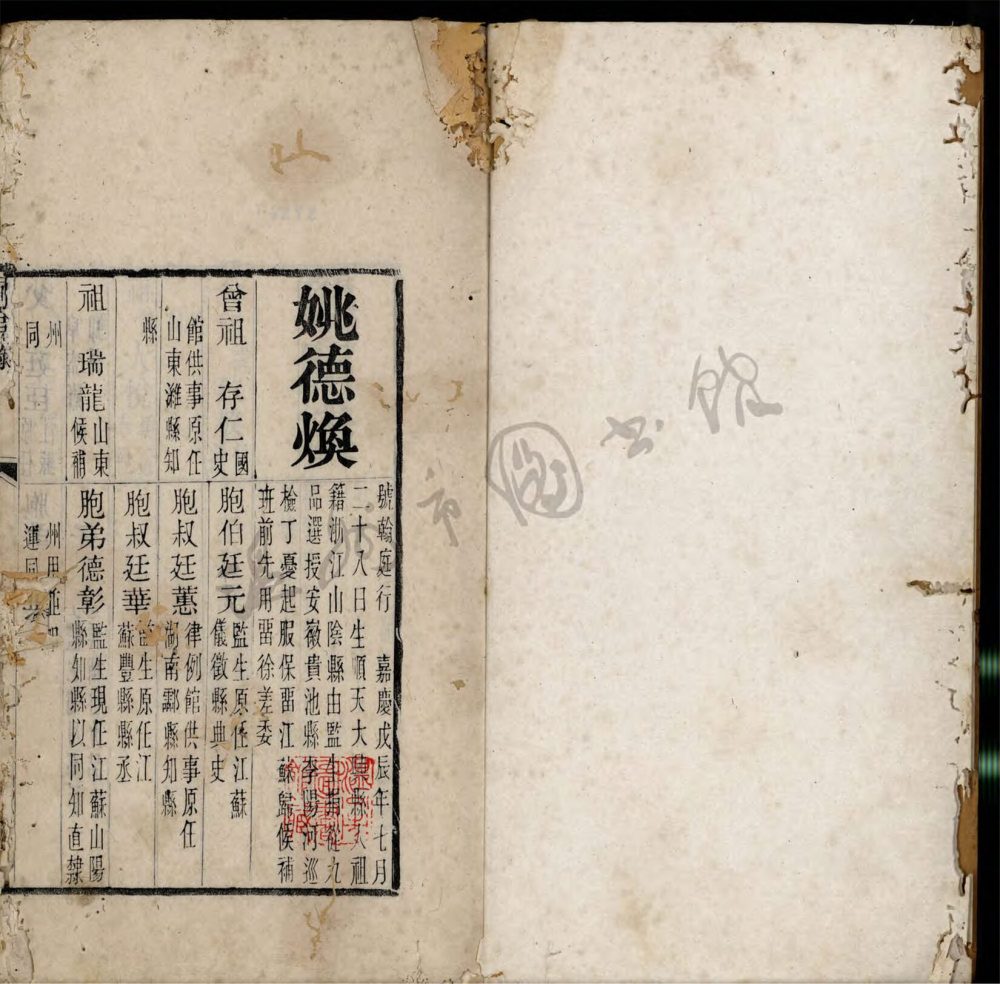 姚德煥
號翰庭行　嘉慶戊辰年七月
二十八日生順天大興縣人祖
籍浙江山陰縣由監生捐從九
品選授安徽貴池縣李陽河巡
檢丁憂起服保畱江蘇歸候補
班前先用畱徐差委
曾祖　存仁國史
館供事原任
山東濰縣知
縣
祖　瑞龍山東候補
州
同
胞伯廷元監生原任江蘇
儀徵縣典史
胞叔廷蕙律例館供事原任
湖南酃縣知縣
胞叔廷華監生原任江
蘇豐縣縣丞
胞弟德彰監生現任江蘇山陽
縣知縣以同知直隸
州用
運同
市圖書館